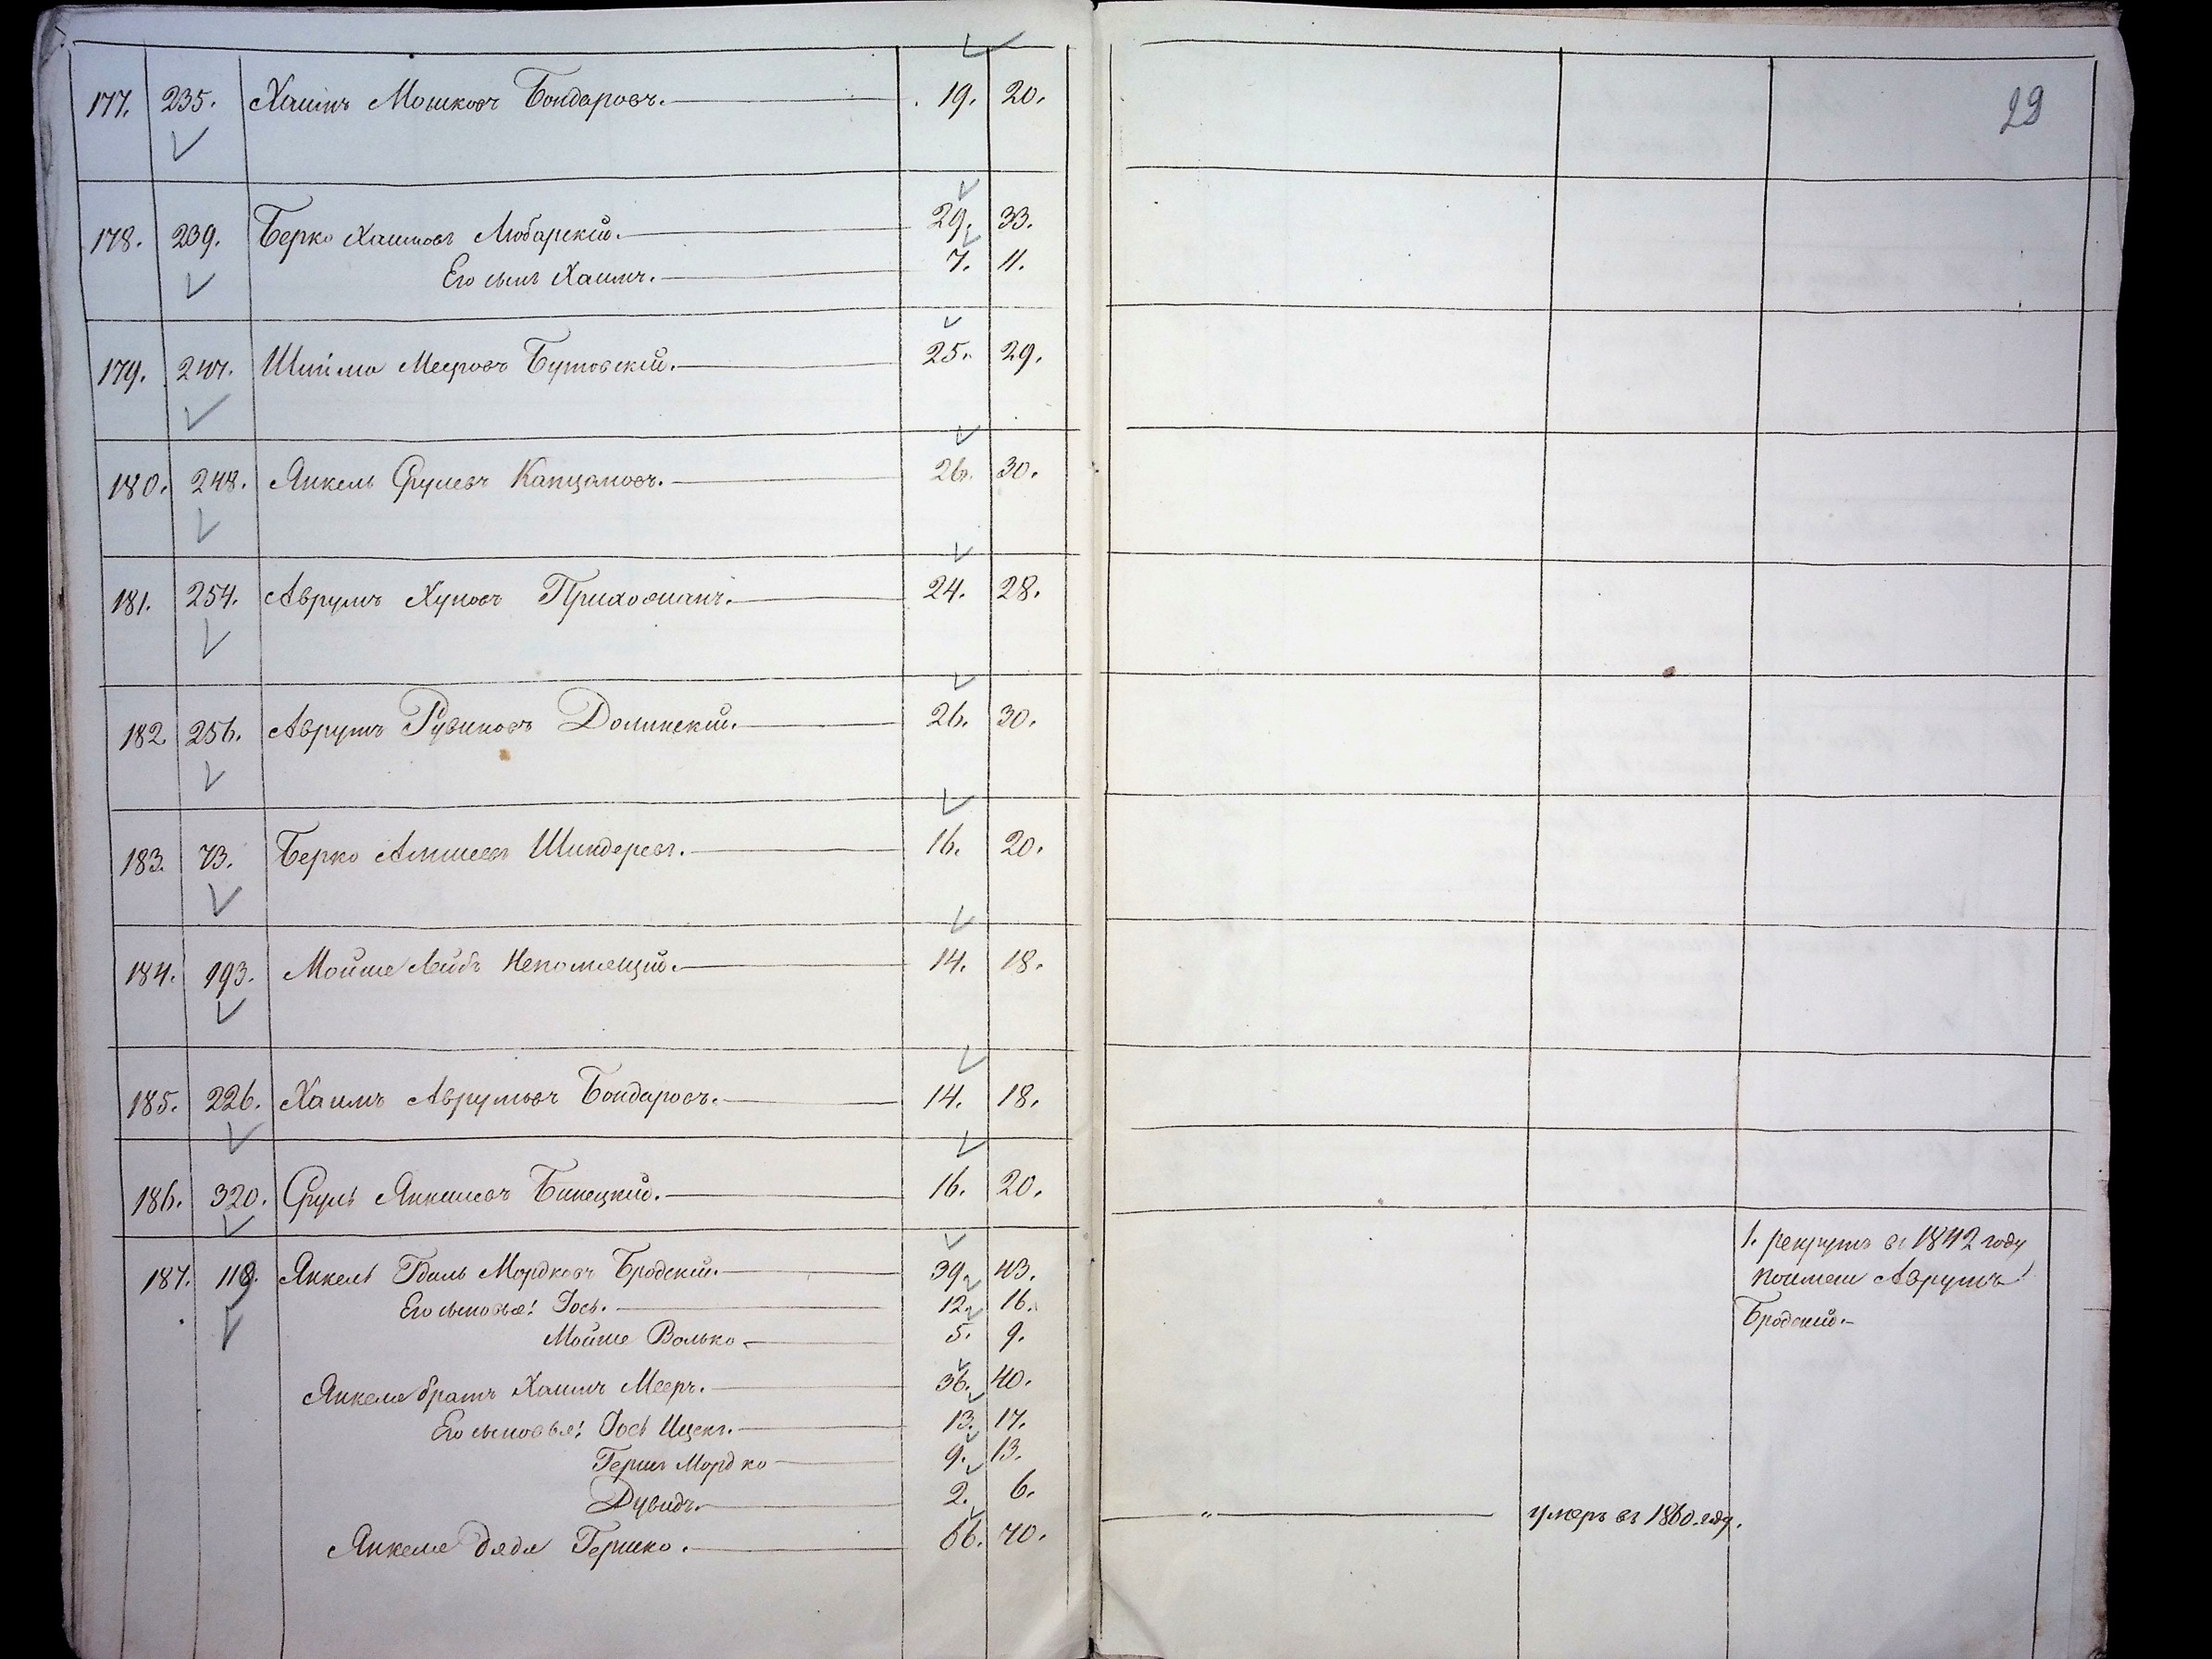 29
177. 235. Хаимъ Мошковъ Бондаровъ. 19. 20.
178. 239. Берко Хаимовъ Любарскій. 29. 33.
Его сынъ Хаимъ. 7. 11.
179. 247. Шлима Мееровъ Бутовскій. 25. 29.
180. 248. Янкель Срулевъ Капцановъ. 26. 30.
181. 254. Аврумъ Хуновъ 24. 28.
182 256. Аврумъ Рувиновъ Долинскій. 26. 30.
183. 73. Берко Шиндеровъ. 16. 20.
184. 193. Мойше Лейбъ Непомнящій. 14. 18.
185. 226. Хаимъ Аврумовъ Бондаровъ. 14. 18.
186. 320. Сруль Янкелевъ Бинецкій. 16. 20.
187. 119. Янкель Гдаль Мордковъ Бродскій. 39. 43.
1. рекрутъ въ 1842 году
поиман Аврумъ
Бродскій.
Его сыновья: Іось. 12. 16.
Мойше Волько 5. 9.
Янкеля братъ Хаимъ Мееръ. 36. 40.
Его сыновья: Іось Ицекъ. 13. 17.
Гершъ Мордко 9. 13.
Дувидъ. 2. 6.
Янкеля дядя Гершко. 66. 70. " умеръ въ 1860 году.